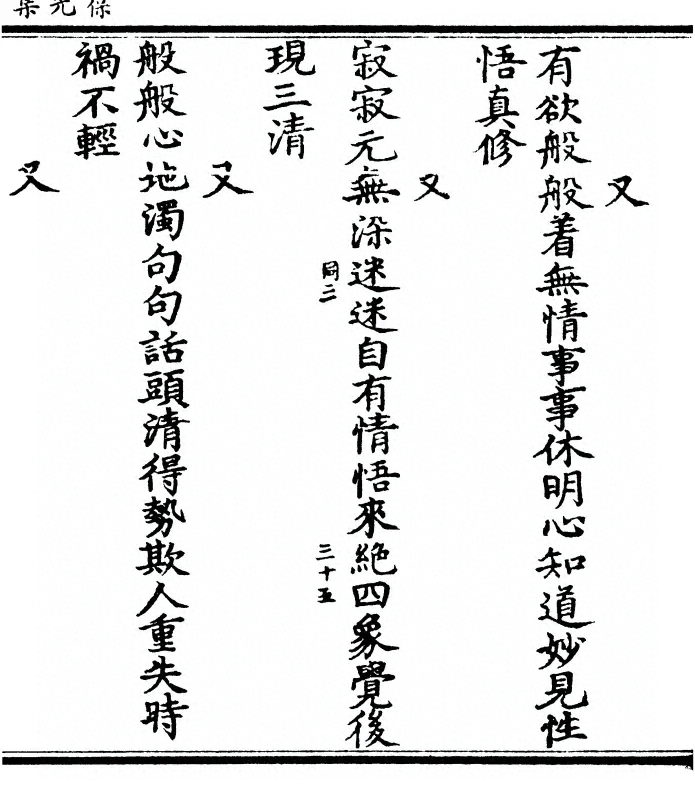 又
有欲般般着無情事事休明心知道妙見性
悟真修
又
寂寂元無深迷迷自有情悟來絶四象覺後
同二
三十五
現三清
又
般般心地濁句句話頭清得勢欺人重失時
禍不輕
又